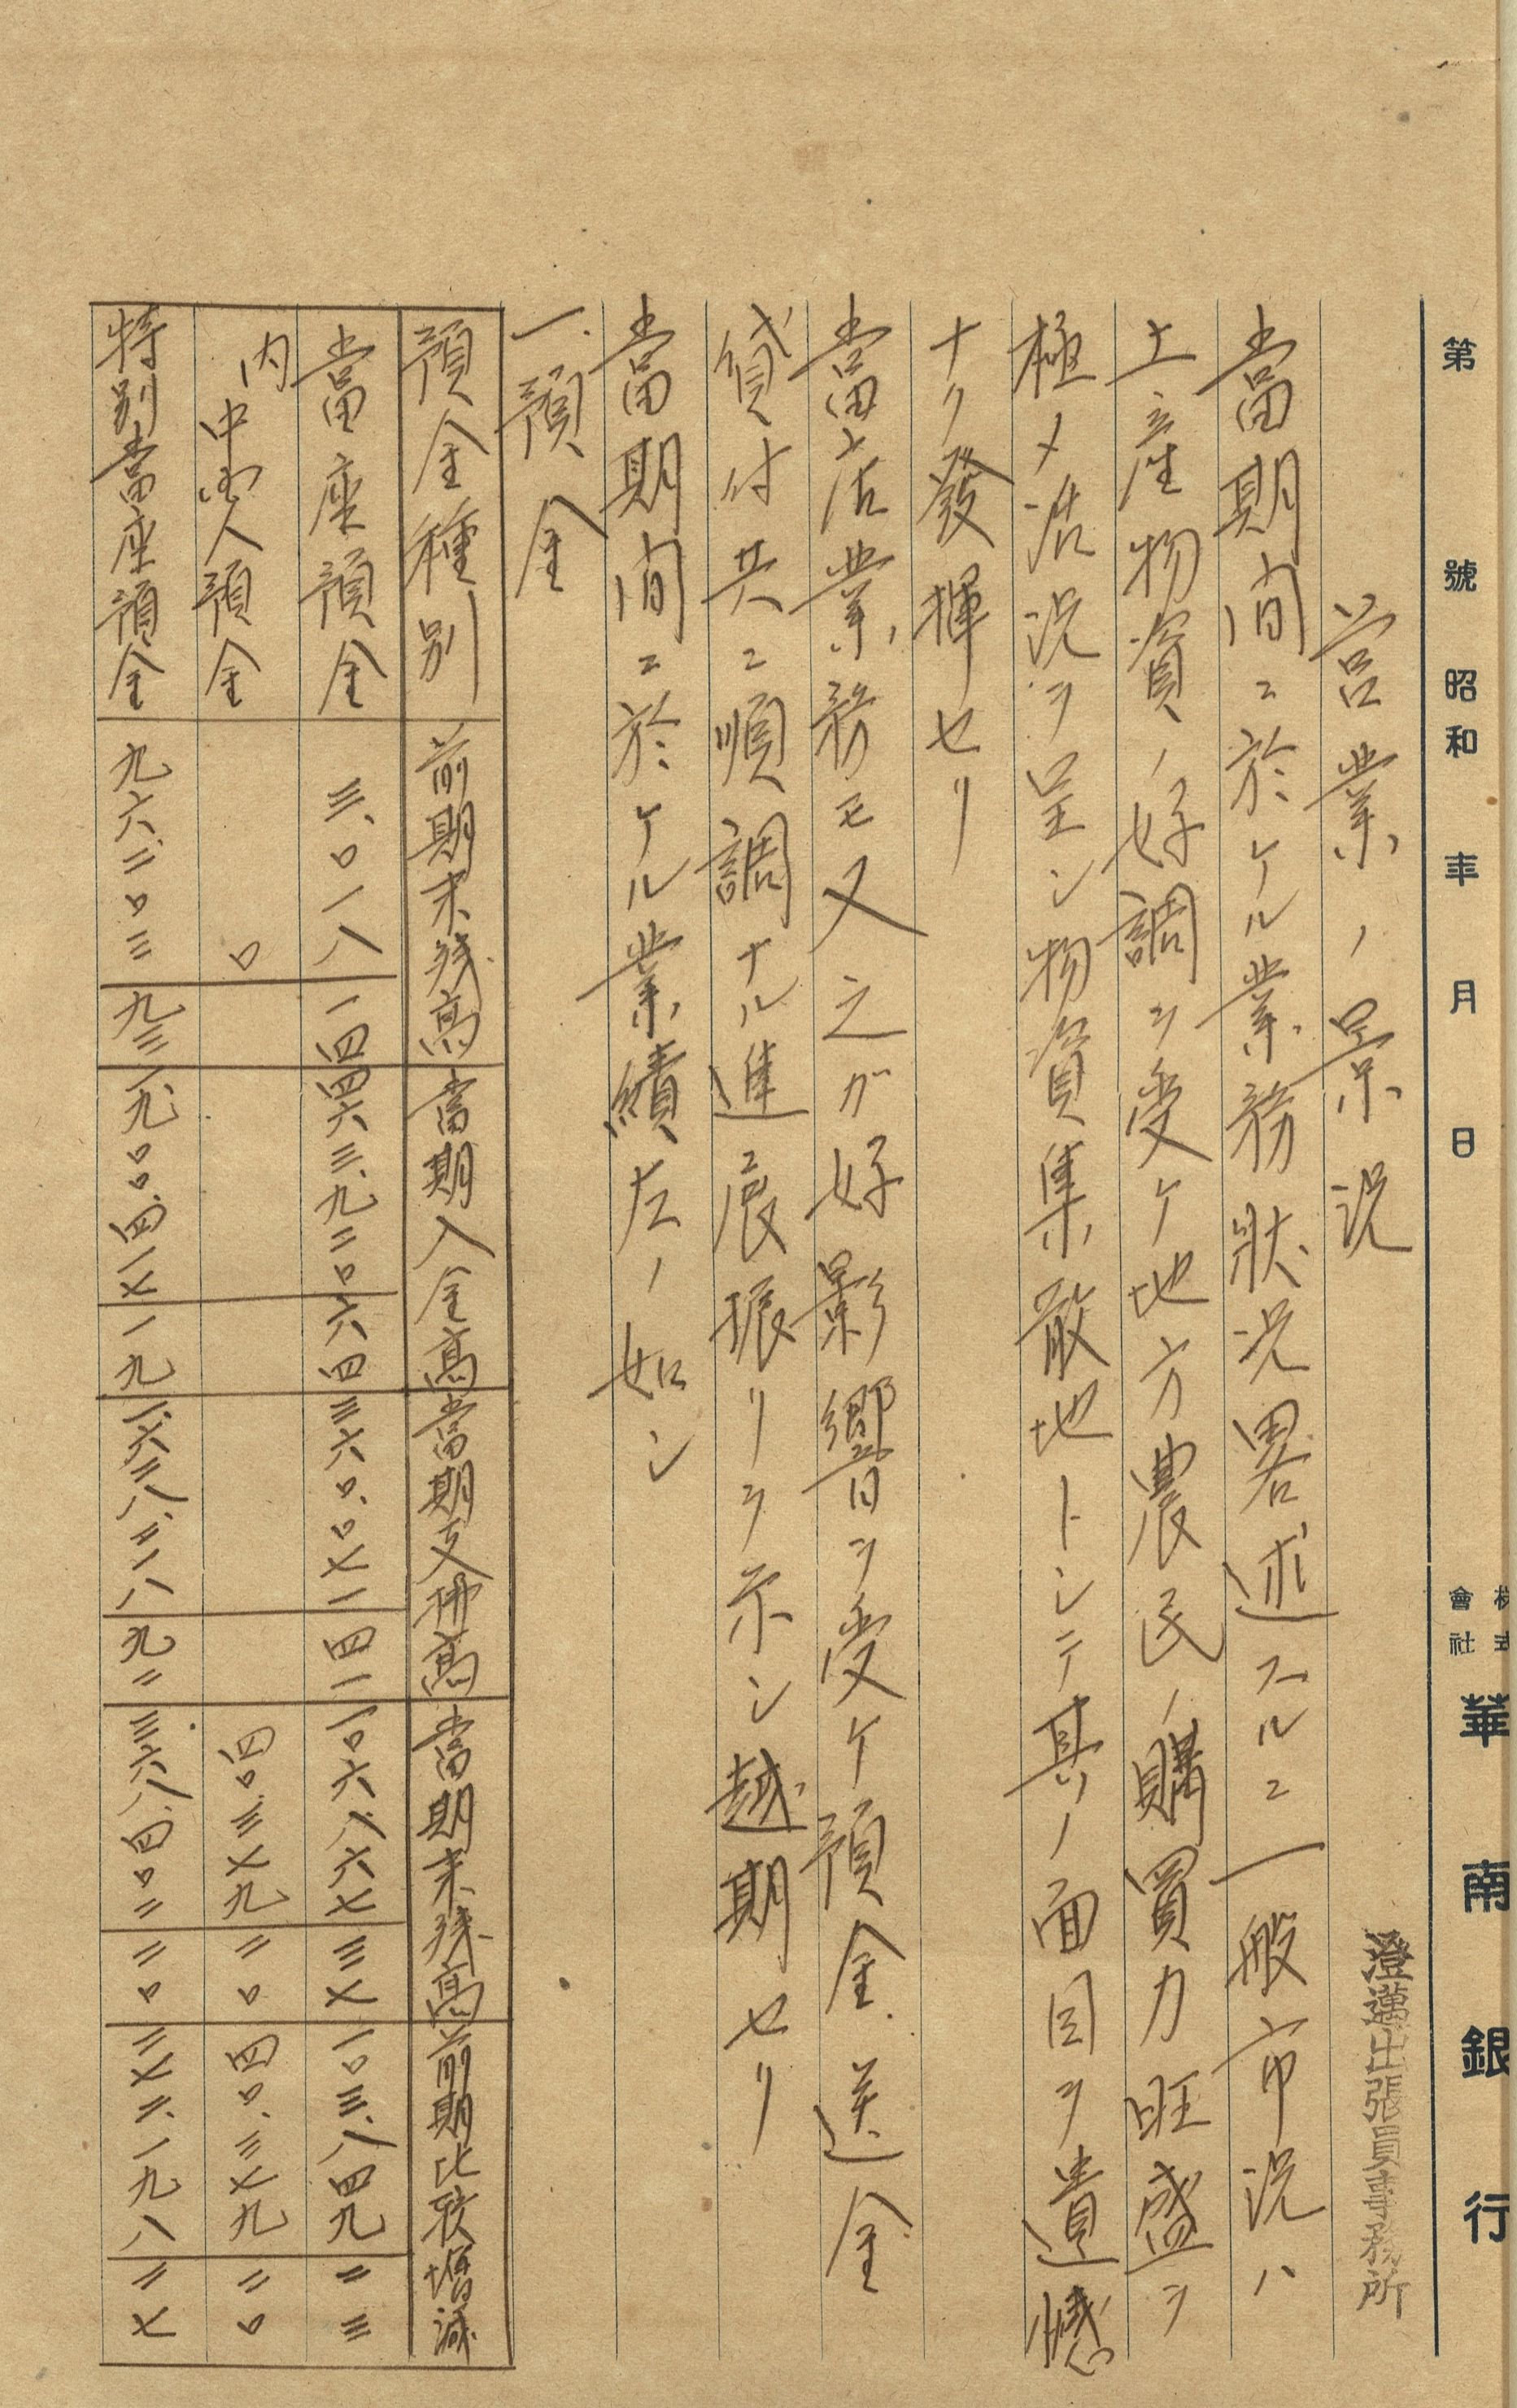 第 號 昭和 年 月 日
株式會社 華南銀行
澄邁出張員事務所
営業ノ景況
當期间ニ於ケル業務狀况畧述スルニ一般市況ハ
土産物資ノ好調ヲ受ケ地方農民ノ購買力旺盛ヲ
極メ活況ヲ呈シ物資集散地トシテ其ノ面目ヲ遺憾
ナク發揮セリ
當店業務モ又之ガ好影響ヲ受ケ預金送金
貸付共ニ順調ナル進展振リヲ示シ越期セリ
當期间ニ於ケル業績左ノ如シ
一、預金
預金種別 前期末残高 當期入金高 當期支拂高 當期末残高 前期比較増減
當座預金 三、〇一八 一四 四六三、九二〇 六四 三六〇、〇七一 四一 一〇六、八六七 三七 一〇三、八四九 二三
内中国人預金 〇 四〇、三七九 二〇 四〇、三七九 二〇
特別當座預金 九六、二〇三 九三 一、九〇〇、四一七 一九 一、六二八、二一八 九二 三六八、四〇二 二〇 二七二、一九八 二七